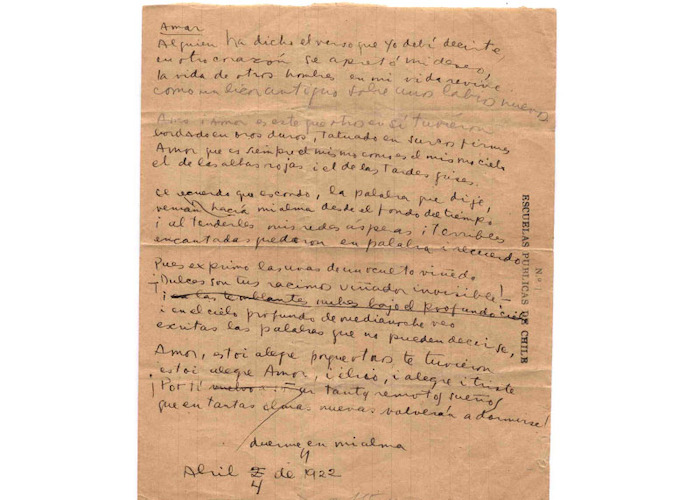 Amar
Alguien ha dicho el verso que yo debí decirte,
en otro corazón se apretó mi deseo,
la vida de otros hombres en mi vida revive
como un licor antiguo sobre unos labios nuevos
Amo i Amor es este que otros en sí tuvieron
bordado en oros duros, tatuado en surcos firmes
Amor que es siempre el mismo como es el mismo cielo
el de las albas rojas i el de las tardes grises.
El recuerdo que escondo, la palabra que dije,
venían hacia mi alma desde el fondo del tiempo
i al tenderles mis redes asperas i terribles
encantadas quedaron en palabra i recuerdo
Pues exprimo las uvas de un oculto viñedo
¡Dulces son tus racimos viñador invisible!
i en las temblantes noches bajo el profundo cielo
i en el cielo profundo de medianoche veo
escritas las palabras que no pueden decirse,
Amor, estoi alegre porque otros te tuvieron
estoi alegre Amor, i alegre i triste
¡Por ti tantos remotos sueños
que en tantas almas nuevas volverán a dormirse!
duermen en mi alma
Abril 4 de 1922
Nº 1
ESCUELAS PUBLICAS DE CHILE